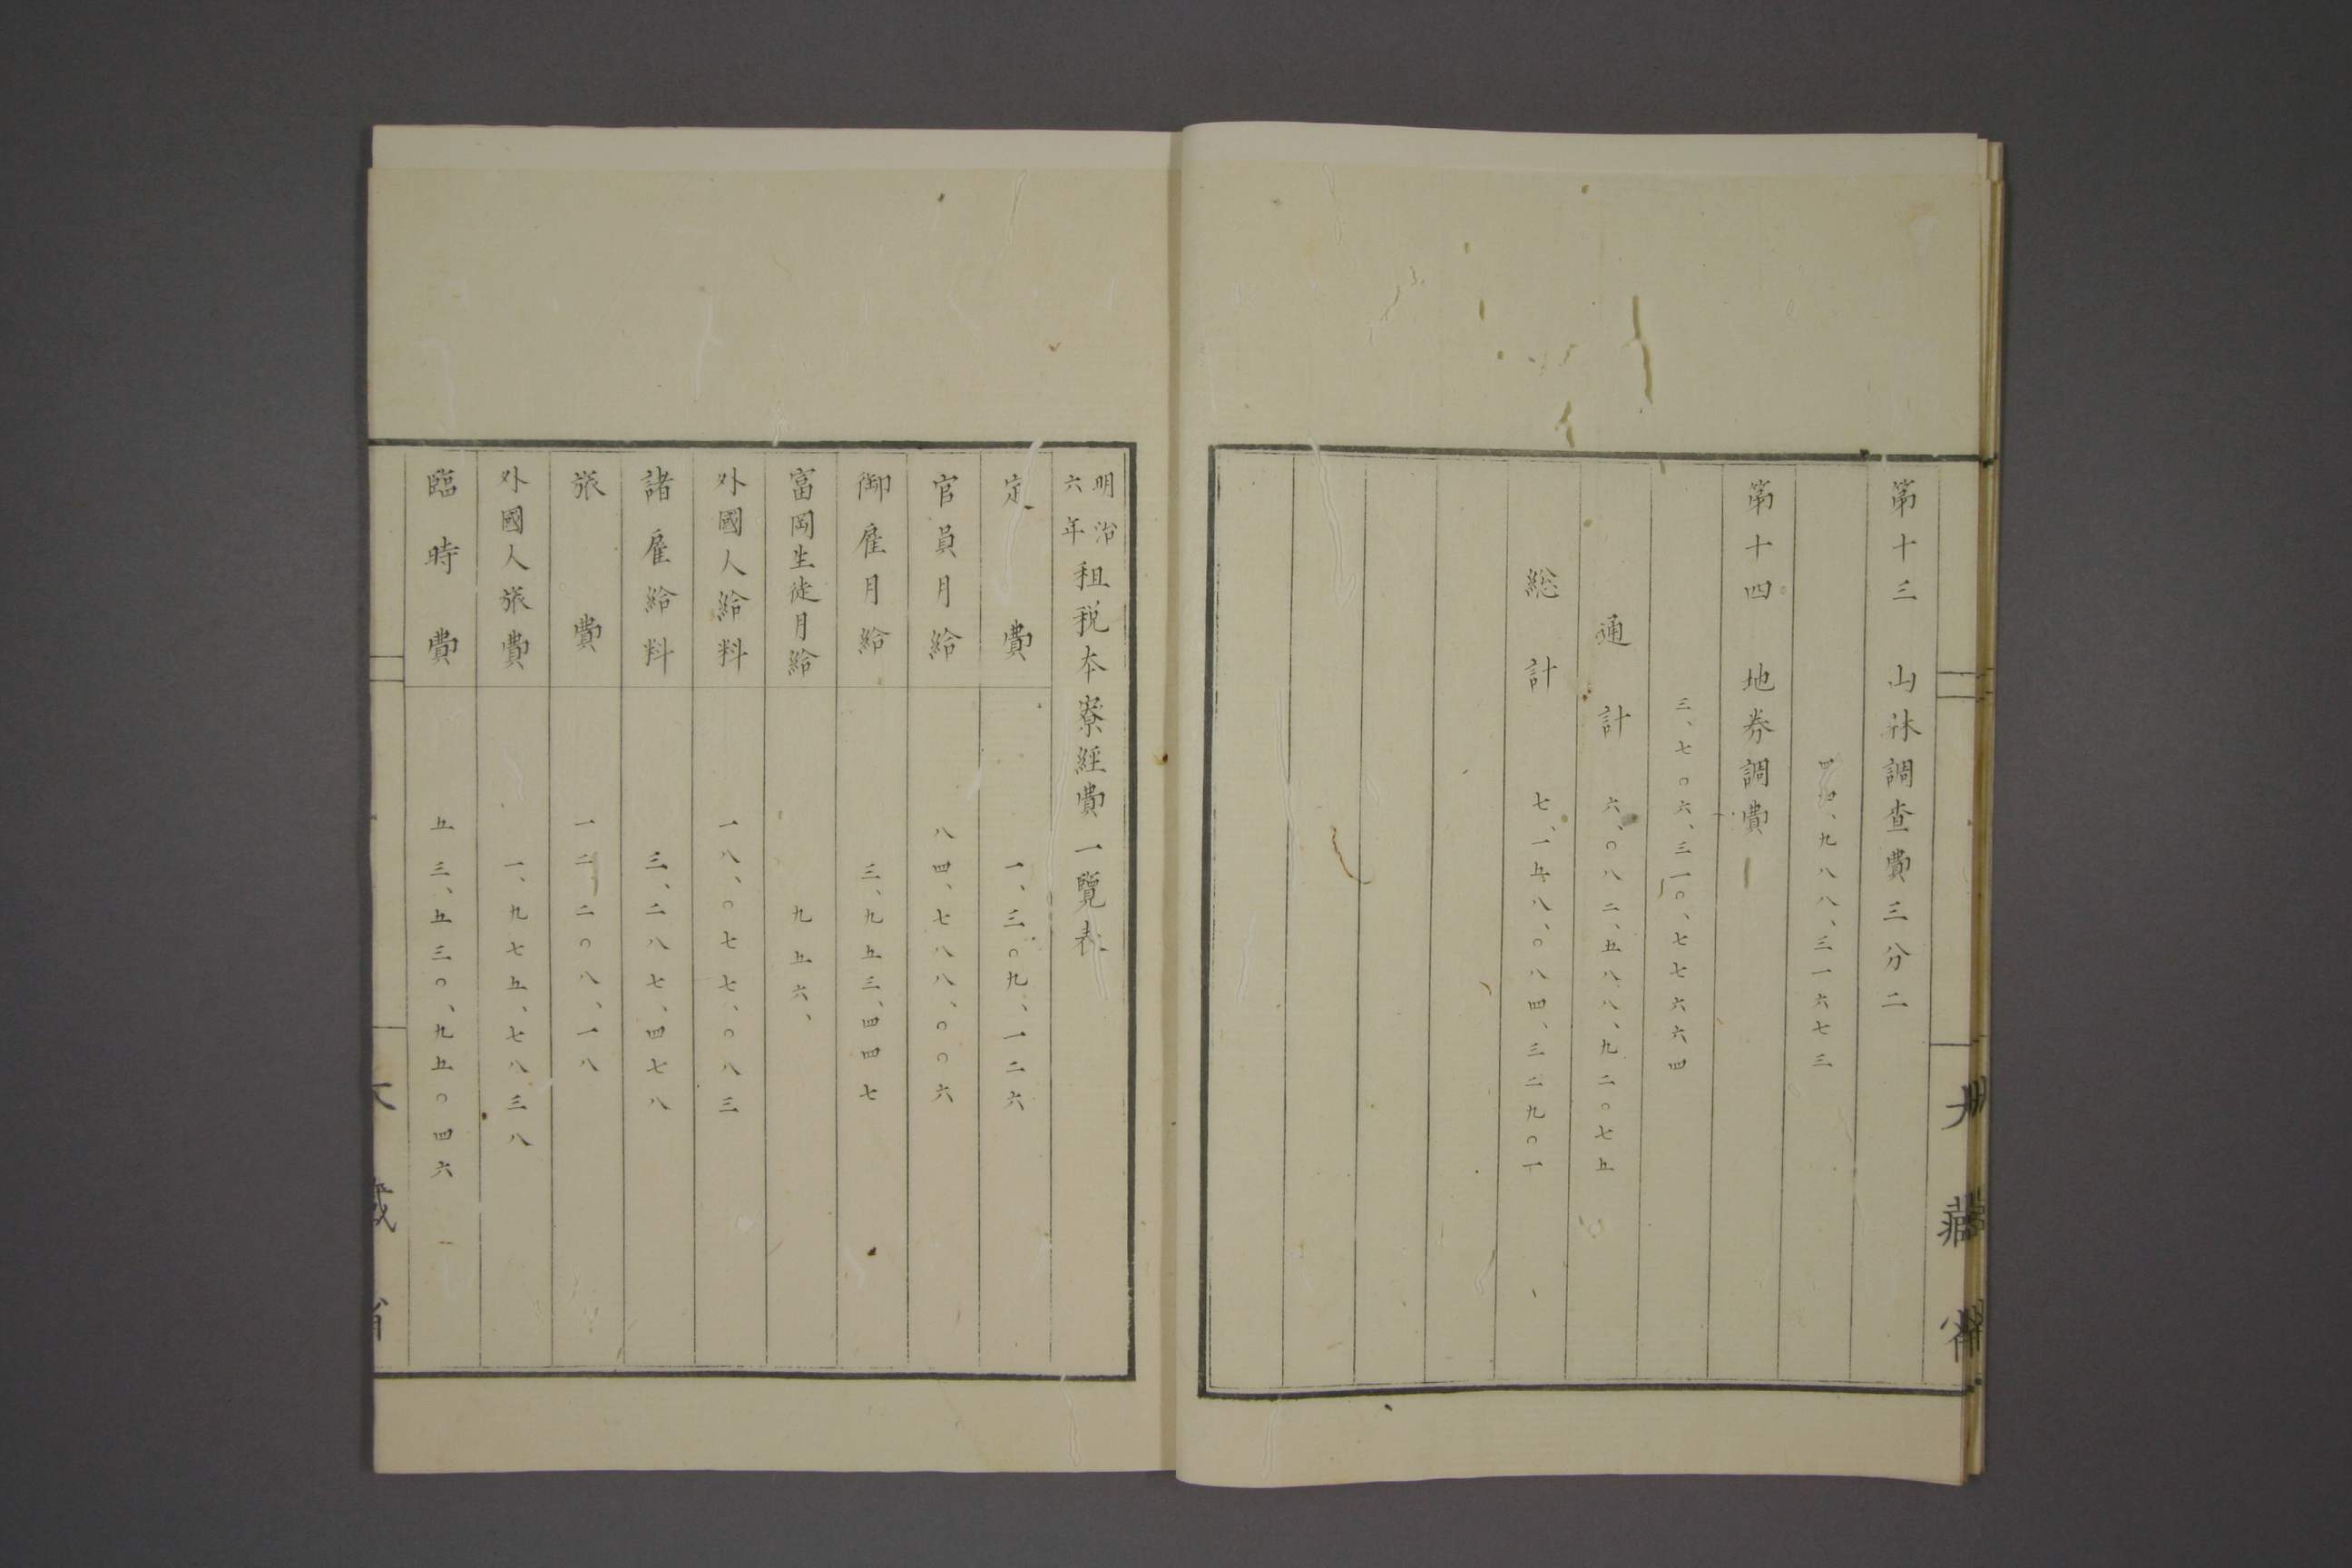 第十三 山林調査費三分二
四四、九八八、三一六七三
第十四 地券調費
三、七〇六、三一〇、七七六六四
通計 六、〇八二、五八八、九二〇七五
総計 七、一五八、〇八四、三二九〇一
大藏省
明治六年租税本寮經費一覽表
定費 一、三〇九、一二六
官員月給 八四、七八八、〇〇六
御雇月給 三、九五三、四四七
富岡生徒月給 九五六、
外國人給料 一八、〇七七、〇八三
諸雇給料 三、二八七、四七八
旅費 一二、二〇八、一八
外國人旅費 一、九七五、七八三八
臨時費 五三、五三〇、九五〇四六